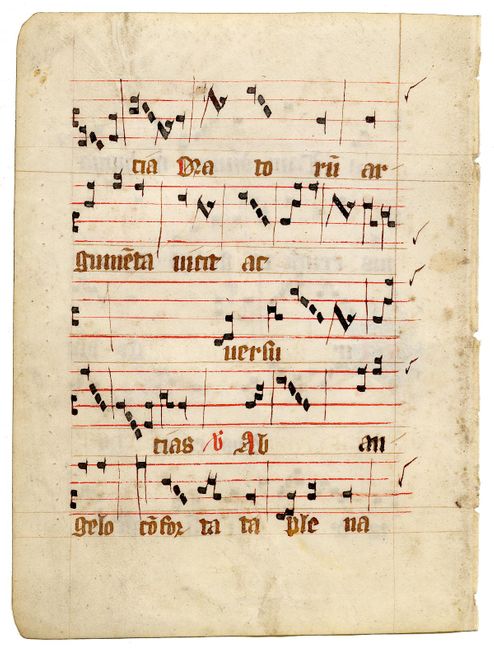 tia Ora to rū ar
gumēta uicit ac
uersu
tias V Ab an
gelo cōfor ta ta ple na